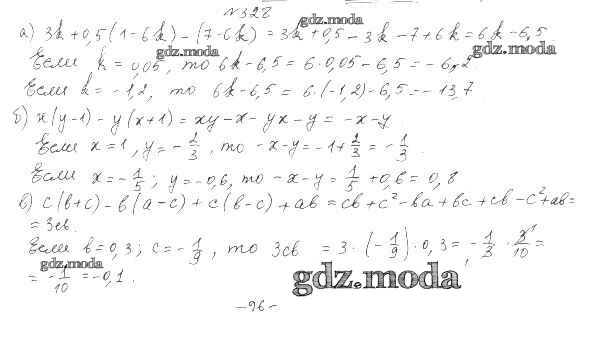 №328
gdz.moda
а) 3k + 0,5(1-6k) - (7-6k) = 3k + 0,5 - 3k - 7 + 6k = 6k - 6,5.
gdz.moda gdz.moda
Если k = 0,05, то 6k - 6,5 = 6·0,05 - 6,5 = -6,2
Если k = -1,2, то 6k - 6,5 = 6·(-1,2) - 6,5 = -13,7
б) x(y-1) - y(x+1) = xy - x - yx - y = -x - y.
Если x = 1, y = -2/3, то -x - y = -1 + 2/3 = -1/3.
Если x = -1/5; y = -0,6, то -x - y = 1/5 + 0,6 = 0,8
в) c(b+c) - b(a-c) + c(b-c) + ab = cb + c² - ba + bc + cb - c² + ab =
= 3cb.
Если b = 0,3; c = -1/9, то 3cb = 3·(-1/9)·0,3 = -1/3 · 3/10 =
gdz.moda
= -1/10 = -0,1.
gdz.moda
-96-